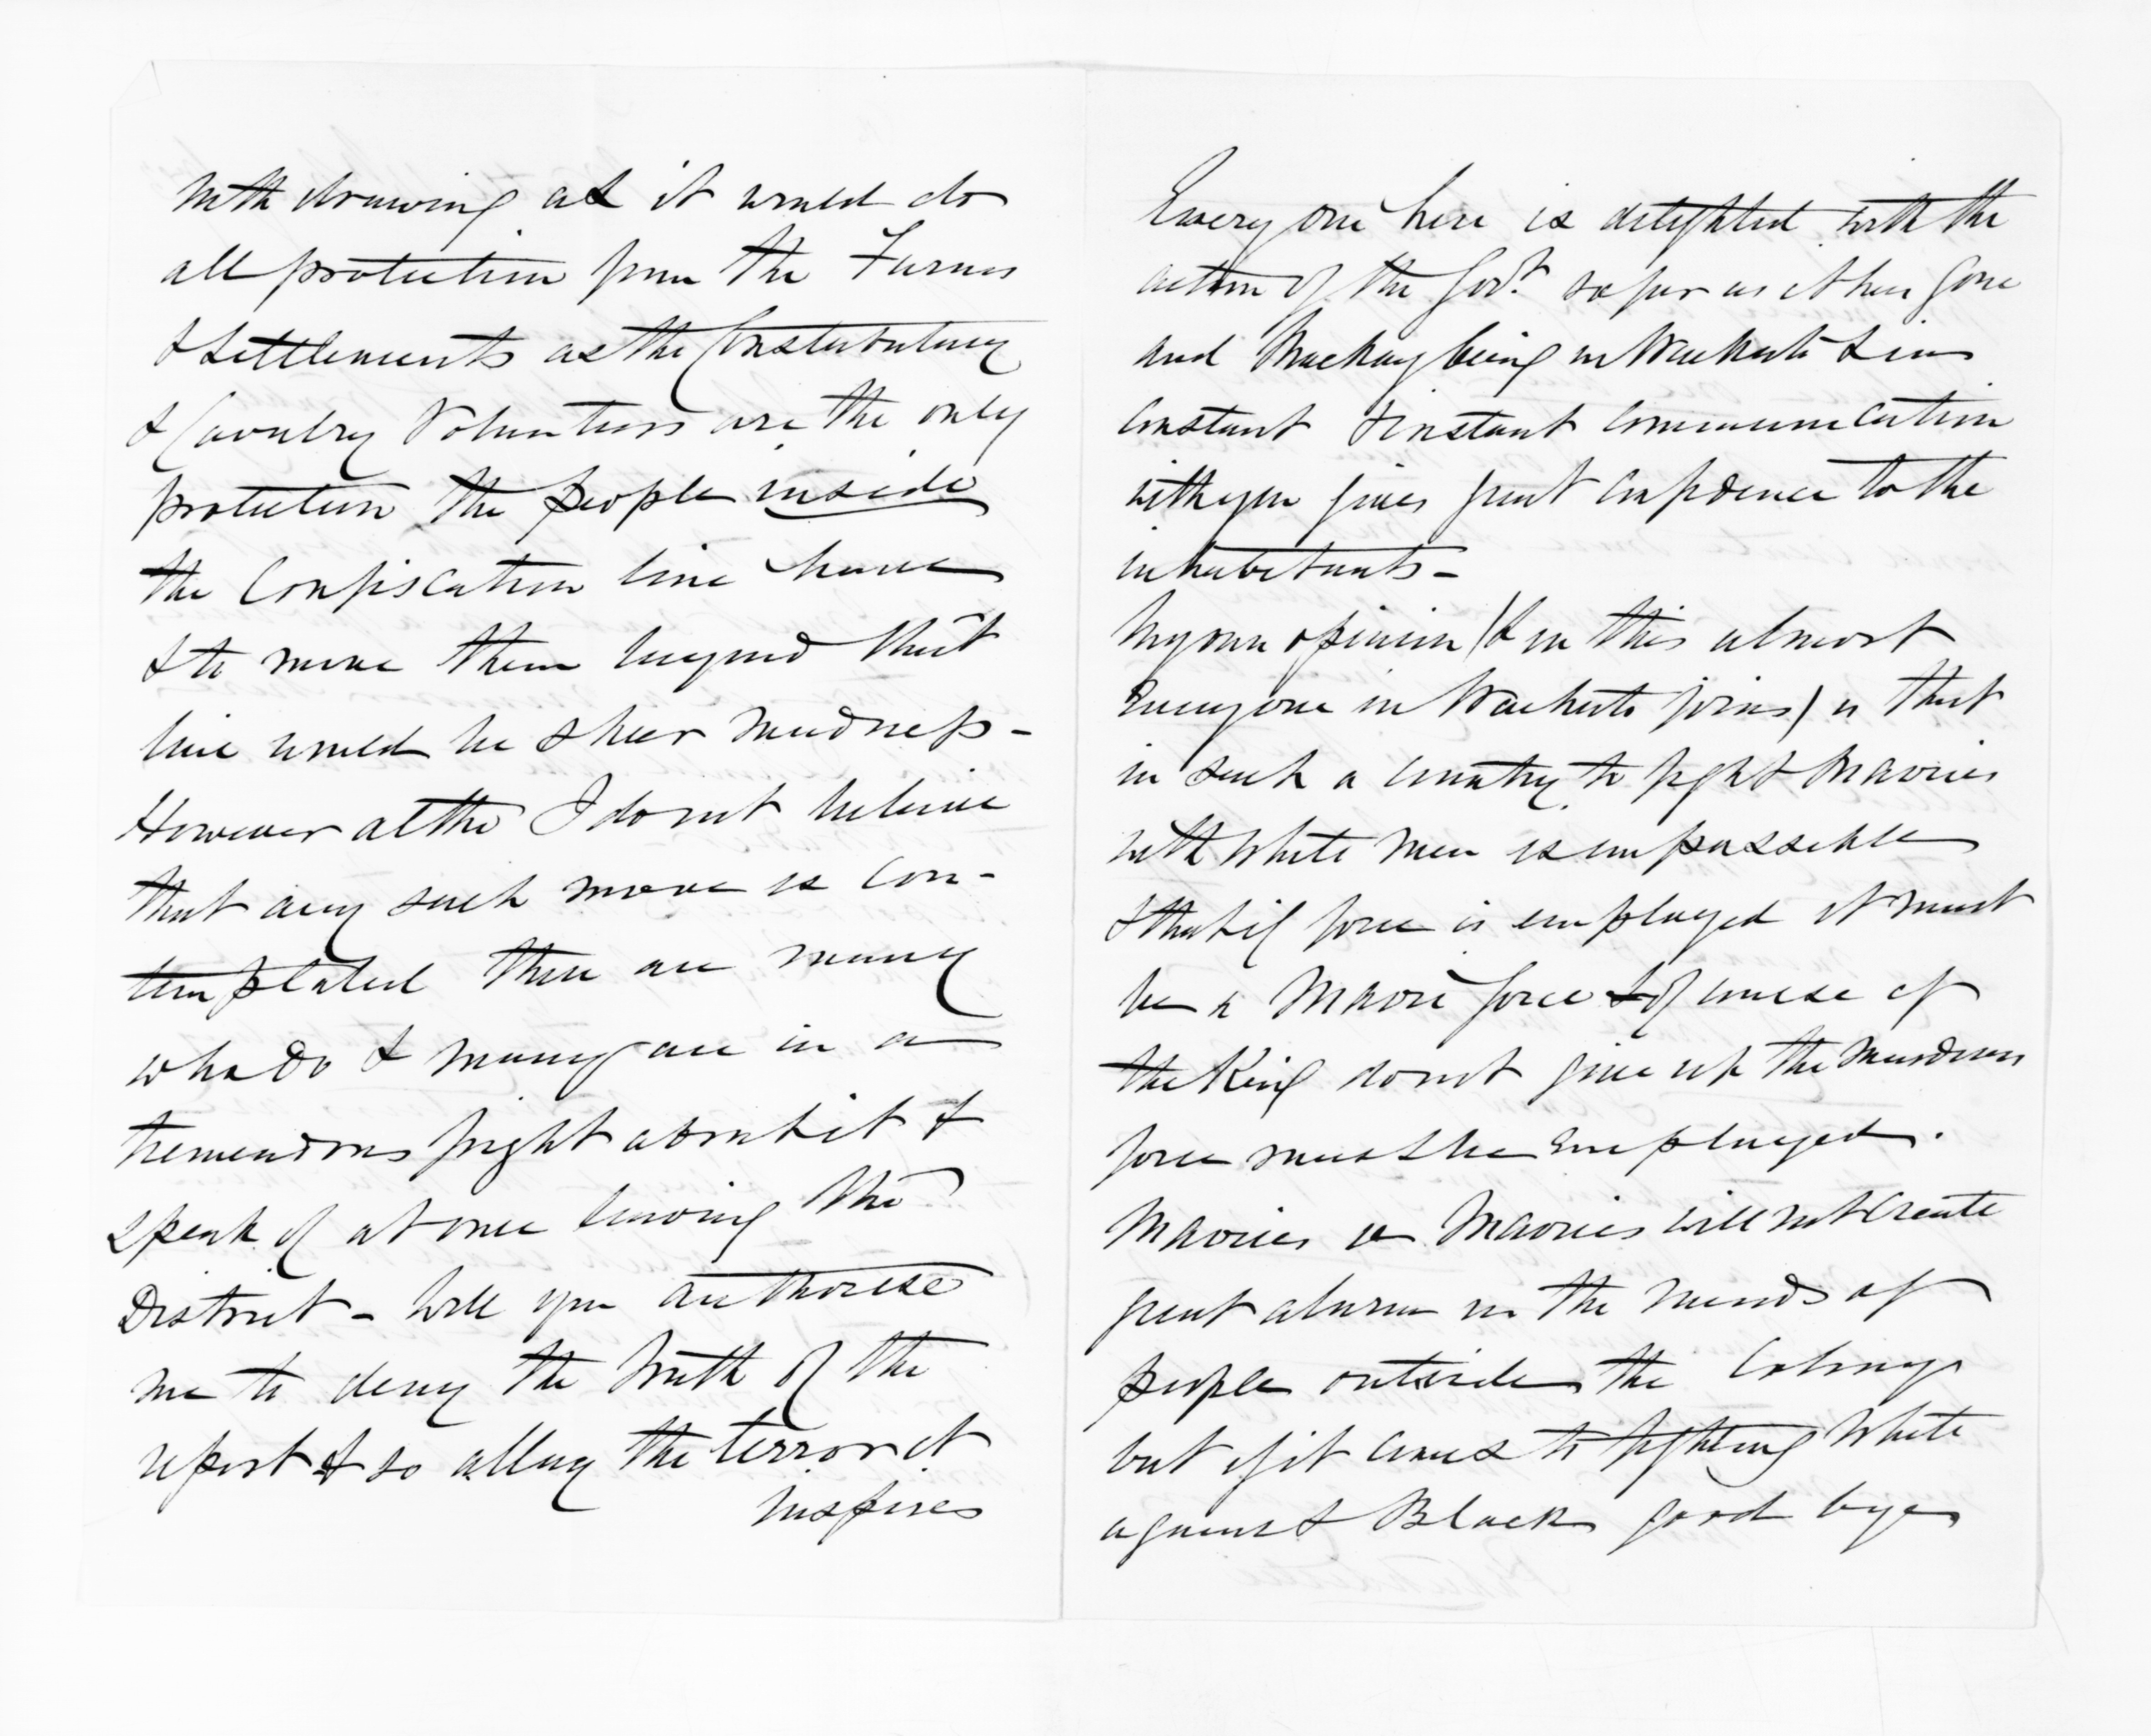 withdrawing as it would do
all protection from the Farms
& Settlements as the Constabulary
& Cavalry Volunteers are the only
protection the people inside
the Confiscation line have
& to move them beyond that
line would be sheer madness -
However altho' I do not believe
that any such move is con-
templated there are many
who do & many are in a
tremendous fright about it &
speak of at once leaving the
District - Will you authorise
me to deny the truth of the
report & so allay the terror it
inspires
Every one here is delighted with the
action of the Govt. so far as it has gone
and Mackay being in Waikato & in
constant & instant communication
with you gives great confidence to the
inhabitants -
My own opinion (& in this almost
everyone in Waikato joins) is that
in such a country, to fight Maories
with White men is impossible
& that if force is employed it must
be a Maori force & of course if
the King do not give up the murderers
force must be employed.
Maories vs Maories will not create
great alarm in the minds of
people outside the Colony
but if it comes to fighting White
against Black good bye